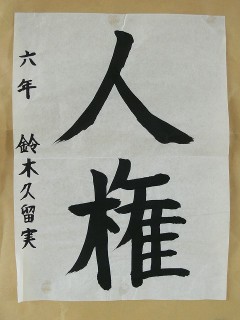 人権
六年 鈴木久留実